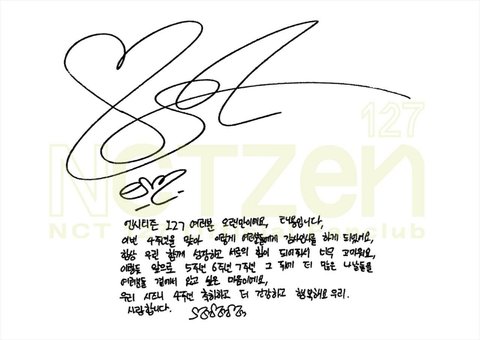 127
NCTzen
NCT 127 Official Fanclub
엔시티즌 127 여러분 오랜만이에요, 태용입니다.
이번 4주년을 맞아 이렇게 여러분들에게 감사인사를 하게 되었네요,
항상 우리 함께 성장하고 서로의 힘이 되어줘서 너무 고마워요,
이렇듯 앞으로 5주년 6주년 7주년 그 뒤에 더 많은 나날들을
여러분들 곁에서 있고 싶은 마음이에요,
우리 시즈니 4주년 축하하고 더 건강하고 행복해요 우리.
사랑합니다.